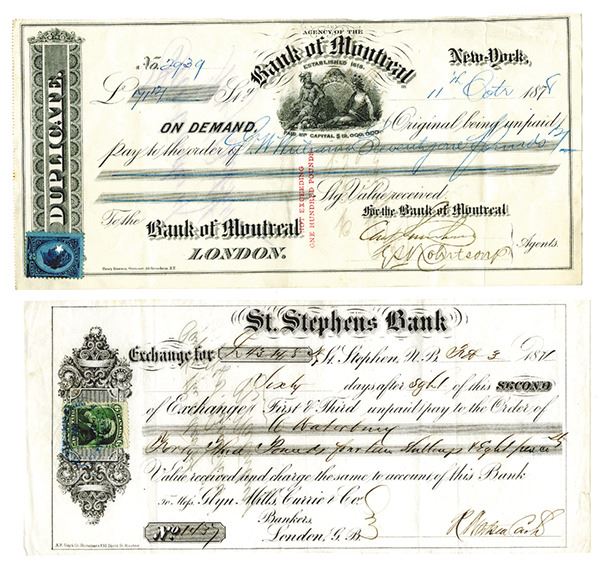 DUPLICATE.
AGENCY OF THE
Bank of Montreal
ESTABLISHED 1818.
New-York,
No. 2939
£ Stg
11th Octr 1878
PAID UP CAPITAL $12,000,000.
ON DEMAND, Original being unpaid
pay to the order of Williams Seventy one pounds
NOT EXCEEDING
ONE HUNDRED POUNDS
Stg Value received.
To the
Bank of Montreal
LONDON.
For the Bank of Montreal
Robertson
Agents.
St. Stephens Bank
Exchange for £43.14.8 Stg St. Stephen, N.B. Feb 3 1871
Sixty days after sight of this SECOND
of Exchange, First & Third unpaid pay to the Order of
C Waterbury
Forty Three Pounds fourteen Shillings & Eight pence Stg
Value received, and charge the same to account of this Bank
To Mess. Glyn, Mills, Currie & Co.
Bankers,
London, G.B.
No. 1437
Cash